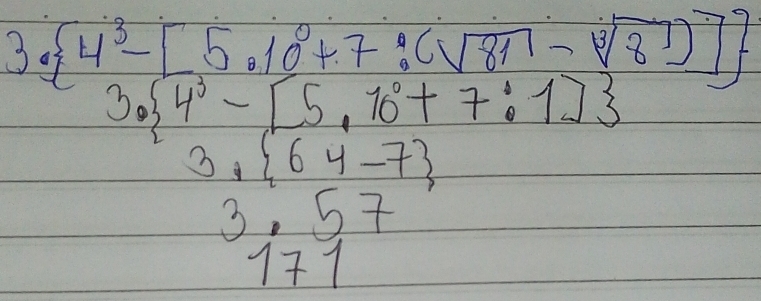 3.{4³-[5.10⁰+7:(√81-∛8)]}
3.{4³-[5.10⁰+7:1]}
3.{64-7}
3.57
171